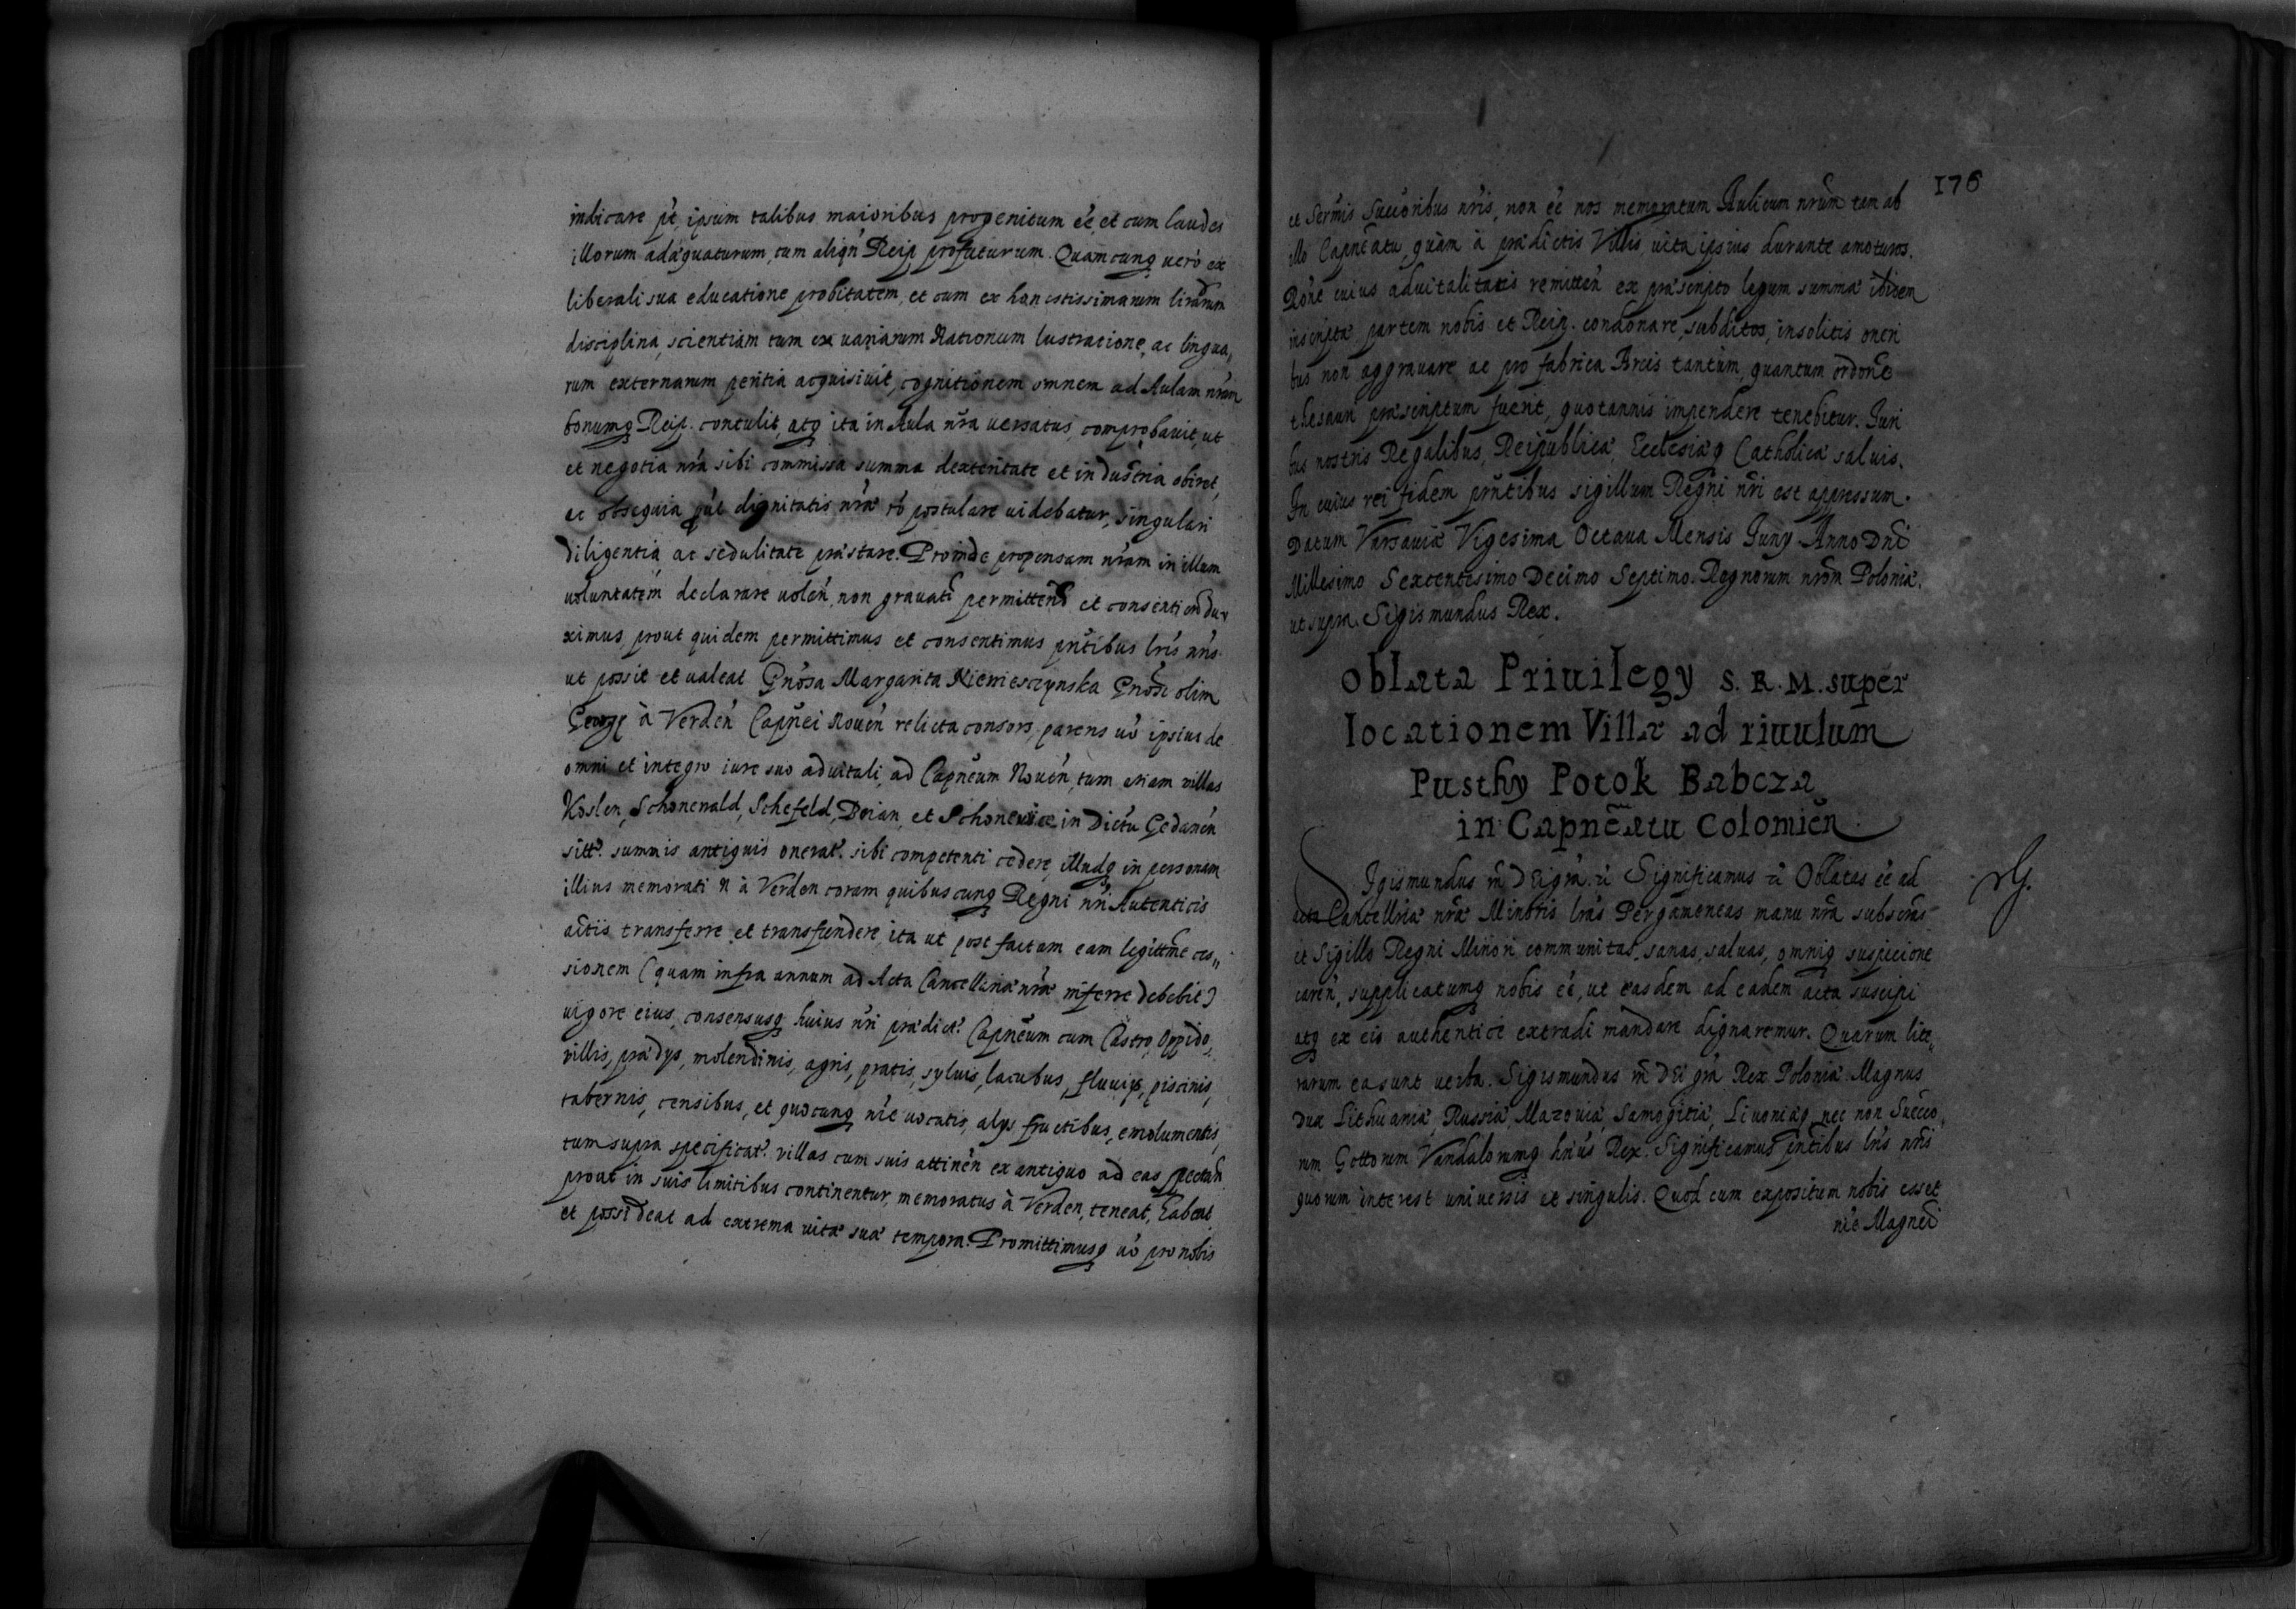 indicare pt, ipsum talibus maioribus progenitum ee, et cum laudes
illorum adæquaturum, tum aliqn Reip profuturum. Quamcunq uerò ex
liberali sua educatione probitatem, et cum ex honestissimarum lirarum
disciplina, scientiam tum ex uariarum Nationum lustratione, ac lingua,
rum externarum peritia acquisiuit, cognitionem omnem ad Aulam nram
bonumq Reip. contulit, atq ita in Aula nra uersatus, comprobauit, ut
et negotia nra sibi commissa summa dexteritate et industria obiret,
ac obsequia put dignitatis nræ ro postulare uidebatur, singulari
diligentia, ac sedulitate præstare. Proinde propensam nram in illum
uoluntatem declarare uolen, non grauati permittend et consentiend du,
ximus, prout quidem permittimus et consentimus pntibus lris nris
ut possit et ualeat Gnosa Margarita Niemiesczynska Gnosi olim
Georgy à Verden Capnei Nouen relicta consors, parens uo ipsius de
omni et integro iure suo aduitali, ad Capneum Nouen, tum etiam villas
Koslen, Schonenald, Schefeld, Doian, et Schonewice in Dictu Gedanen
sitt. summis antiquis onerat. sibi competenti cedere, illudq in personam
illius memorati N à Verden coram quibuscunq Regni nri Autenticis
actis transferre et transfundere, ita ut post factam eam legittme ces,,
sionem (quam infra annum ad Acta Cancellariæ nræ inferre debebit)
uigore eius, consensusq huius nri prædict. Capneum cum Castro, Oppido,
villis, prædys, molendinis, agris, pratis, syluis, lacubus, fluuijs, piscinis,
tabernis, censibus, et quocunq nie uocatis, alys fructibus, emolumentis,
tum supra specificat. villas cum suis attinen ex antiquo ad eas spectan
prout in suis limitibus continentur, memoratus à Verden, teneat, habeat
et possideat ad extrema uitæ suæ tempora. Promittimusq uo pro nobis
176
et Sermis Succoribus nris, non ee nos memoratum Aulicum nrum tam ab
illo Capneatu, quàm à prædictis Villis, uita ipsius durante amoturos.
Rone cuius aduitalitatis remitten ex præscripto legum summæ ibidem
inscriptæ partem nobis et Reip. condonare, subditos, insolitis oneri
bus non aggrauare ac pro fabrica Arcis tantùm, quantum ordone
thesauri præscriptum fuerit, quotannis impendere tenebitur. Iuri
bus nostris Regalibus, Reipublicæ, Ecclesiæq Catholicæ saluis.
In cuius rei fidem pntibus sigillum Regni nri est appressum.
Datum Varsauiæ Vigesima Octaua Mensis Iuny Anno Dni
Millesimo Sexcentesimo Decimo Septimo. Regnorum nrom Poloniæ.
ut supra. Sigismundus Rex.
Oblata Priuilegy S. R. M. super
locationem Villæ ad riuulum
Pusthy Potok Babcza
in Capneatu Colomien
Sigismundus III Dei gra. Significamus Oblatas ee ad
acta Cancellriæ nræ Minoris lras Pergameneas manu nra subscras
et Sigillo Regni Minori communitas, sanas, saluas, omniq suspicione
caren, supplicatumq nobis ee, ut easdem ad eadem acta suscipi
atq ex eis authentice extradi mandare dignaremur. Quarum lite,,
rarum ea sunt uerba. Sigismundus III Dei gra Rex Poloniæ Magnus
Dux Lithuaniæ, Russiæ, Mazouiæ, Samogitiæ, Liuoniæq nec non Sueco,
rum Gottorum Vandalorumq hrius Rex. Significamus pntibus lris nris
quorum interest uniuersis et singulis. Quod cum expositum nobis esset
nie Magnei